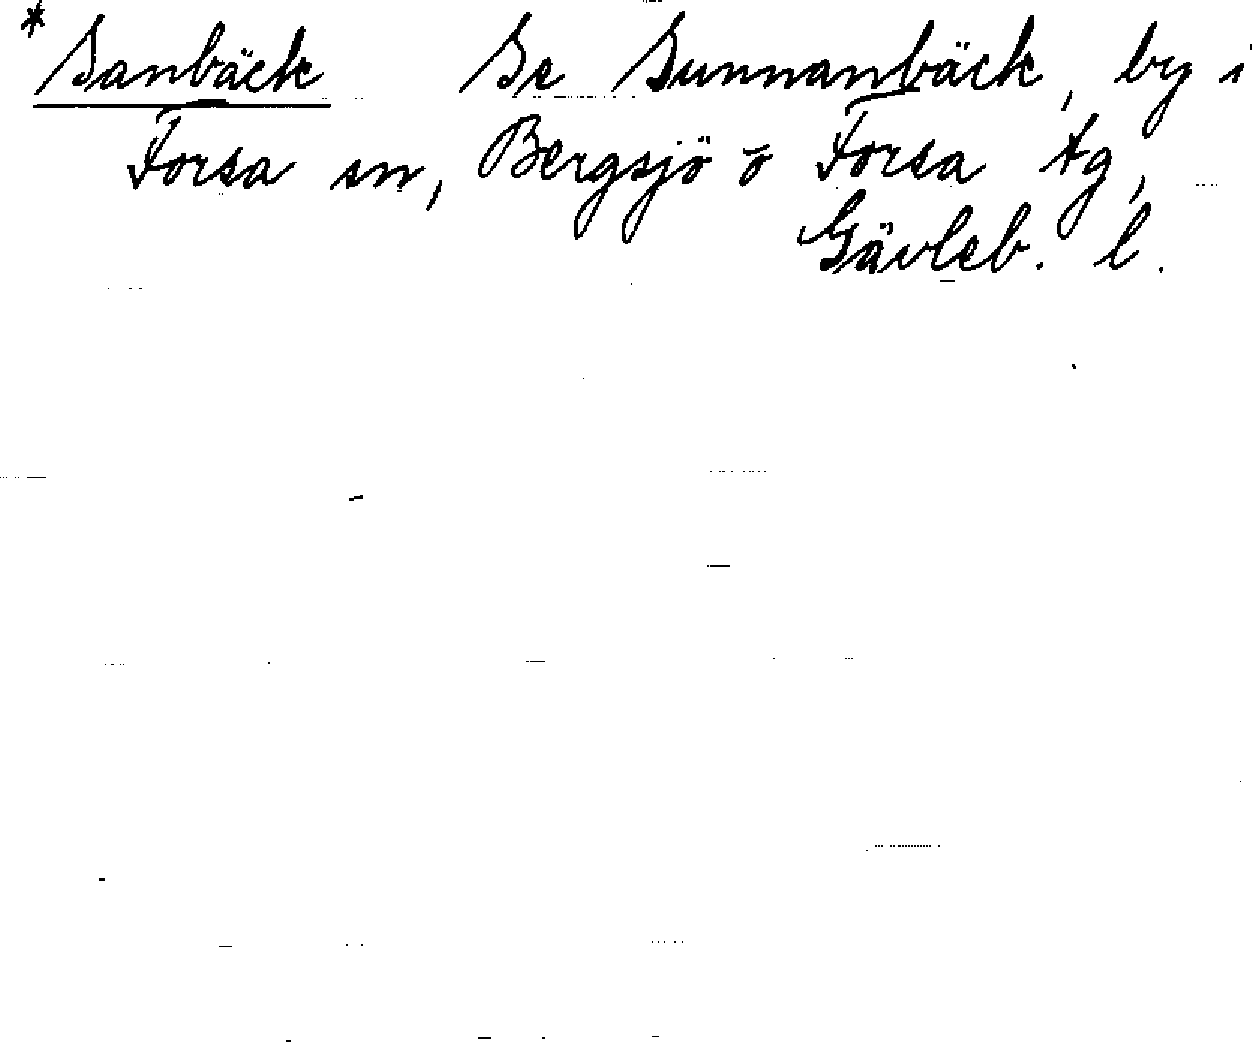 * Sanbäck Se Sunnanbäck, by i
Forsa sn, Bergsjö o Forsa tg,
Gävleb. l.